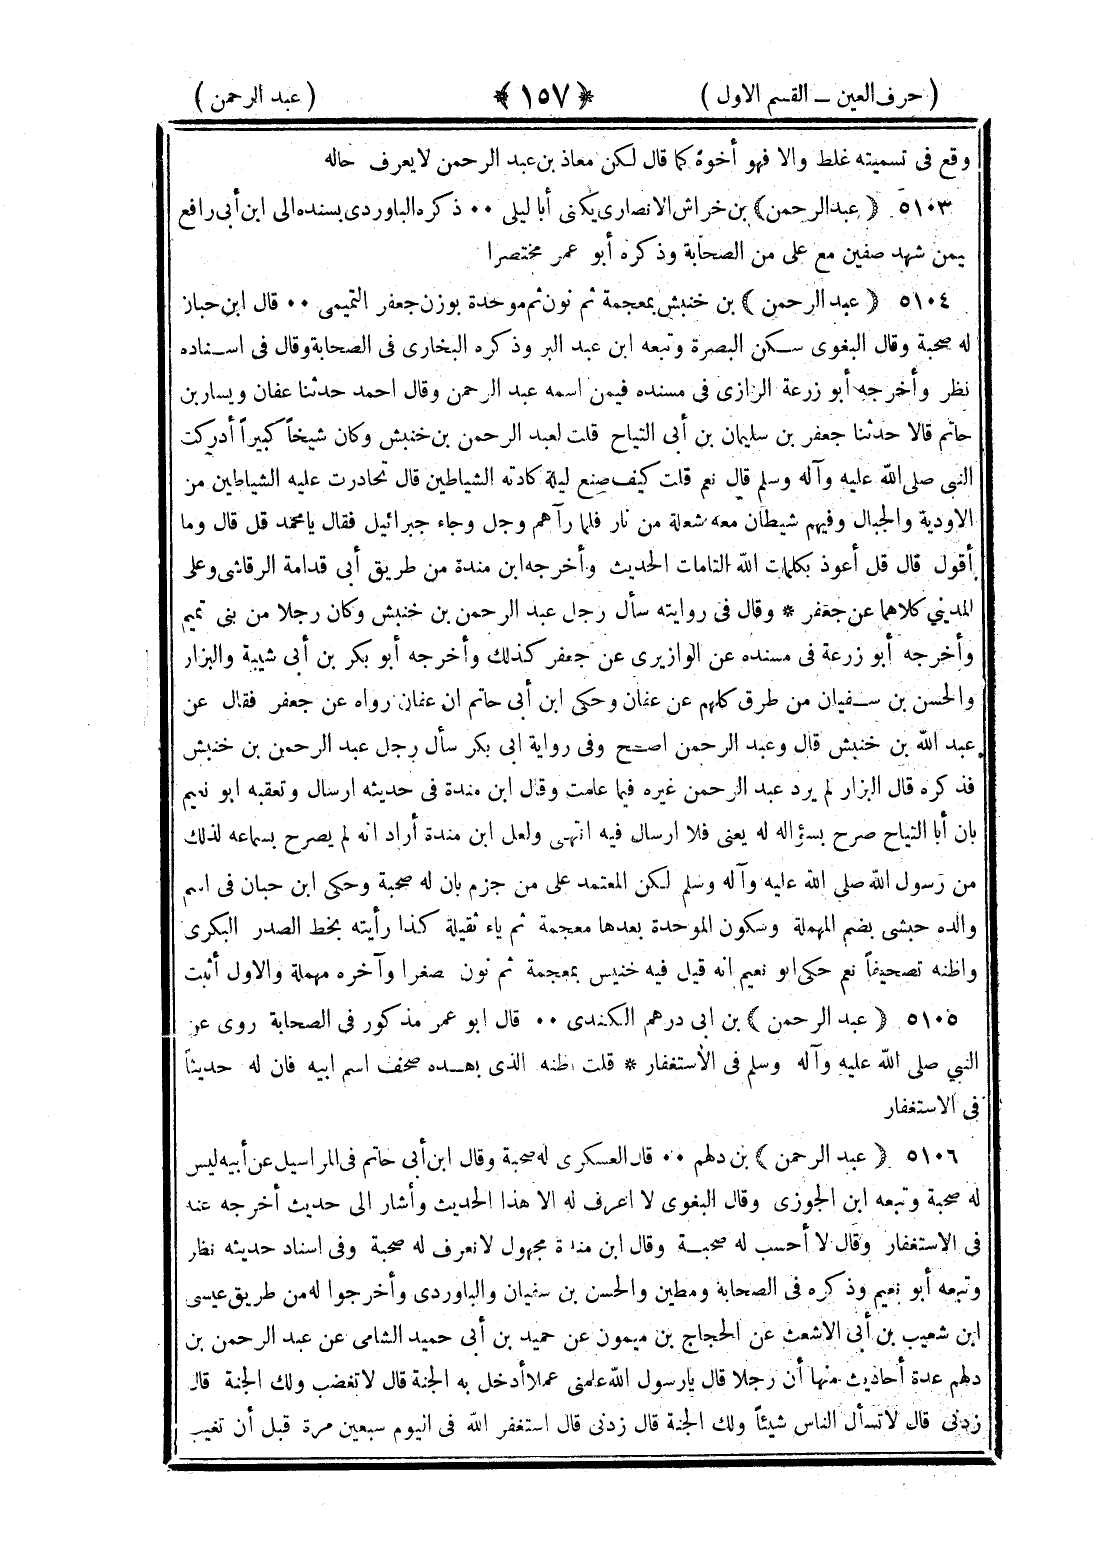 ( حرف العين ــ القسم الاول ) ﴿ ١٥٧ ﴾ ( عبد الرحمن )
وقع فى تسميته غلط والا فهو أخوه كما قال لكن معاذ بن عبد الرحمن لا يعرف حاله
٥١٠٣ ﴿ عبد الرحمن ﴾ بن خراش الانصارى يكنى أبا ليلى ٠٠ ذكره الباوردى بسنده الى ابن أبى رافع
يمن شهد صفين مع على من الصحابة وذكره أبو عمر مختصرا
٥١٠٤ ﴿ عبد الرحمن ﴾ بن خنبش بمعجمة ثم نون ثم موحدة بوزن جعفر التميمى ٠٠ قال ابن حبان
له صحبة وقال البغوى سكن البصرة وتبعه ابن عبد البر وذكره البخارى فى الصحابة وقال فى اسناده
نظر وأخرجه أبو زرعة الرازى فى مسنده فيمن اسمه عبد الرحمن وقال احمد حدثنا عفان ويسار بن
حاتم قالا حدثنا جعفر بن سليمان بن أبى التياح قلت لعبد الرحمن بن خنبش وكان شيخاً كبيراً أدركت
النبى صلى الله عليه وآله وسلم قال نعم قلت كيف صنع ليلة كادته الشياطين قال تحادرت عليه الشياطين من
الاودية والجبال وفيهم شيطان معه شعلة من نار فلما رآهم وجل وجاء جبرائيل فقال يا محمد قل قال وما
أقول قال قل أعوذ بكلمات الله التامات الحديث وأخرجه ابن مندة من طريق أبى قدامة الرقاشى وعلى
المدينى كلاهما عن جعفر * وقال فى روايته سأل رجل عبد الرحمن بن خنبش وكان رجلا من بنى تميم
وأخرجه أبو زرعة فى مسنده عن الوازيرى عن جعفر كذلك وأخرجه أبو بكر بن أبى شيبة والبزار
والحسن بن سفيان من طرق كلهم عن عفان وحكى ابن أبى حاتم ان عفان رواه عن جعفر فقال عن
عبد الله بن خنبش قال وعبد الرحمن اصح وفى رواية ابى بكر سأل رجل عبد الرحمن بن خنبش
فذكره قال البزار لم يرد عبد الرحمن غيره فيما علمت وقال ابن مندة فى حديثه ارسال وتعقبه ابو نعيم
بان أبا التياح صرح بسؤاله له يعنى فلا ارسال فيه انتهى ولعل ابن مندة أراد انه لم يصرح بسماعه لذلك
من رسول الله صلى الله عليه وآله وسلم لكن المعتمد على من جزم بان له صحبة وحكى ابن حبان فى اسم
والده حبشى بضم المهملة وسكون الموحدة بعدها معجمة ثم ياء ثقيلة كذا رأيته بخط الصدر البكرى
واظنه تصحيفاً نعم حكى ابو نعيم انه قيل فيه خنيس بمعجمة ثم نون صغرا وآخره مهملة والاول أثبت
٥١٠٥ ﴿ عبد الرحمن ﴾ بن ابى درهم الكندى ٠٠ قال ابو عمر مذكور فى الصحابة روى عن
النبي صلى الله عليه وآله وسلم فى الأستغفار * قلت اظنه الذى بعده صحف اسم ابيه فان له حديثاً
فى الاستغفار
٥١٠٦ ﴿ عبد الرحمن ﴾ بن دلهم ٠٠ قال العسكرى له صحبة وقال ابن أبى حاتم فى المراسيل عن أبيه ليس
له صحبة وتبعه ابن الجوزى وقال البغوى لا اعرف له الا هذا الحديث وأشار الى حديث أخرجه عنه
فى الاستغفار وقال لا أحسب له صحبة وقال ابن مندة مجهول لا نعرف له صحبة وفى اسناد حديثه نظر
وتبعه أبو نعيم وذكره فى الصحابة ومطين والحسن بن سفيان والباوردى وأخرجوا له من طريق عيسى
ابن شعيب بن أبى الاشعث عن الحجاج بن ميمون عن حميد بن أبى حميد الشامى عن عبد الرحمن بن
دلهم عدة أحاديث منها أن رجلا قال يا رسول الله علمنى عملا أدخل به الجنة قال لا تغضب ولك الجنة قال
زدنى قال لا تسأل الناس شيئاً ولك الجنة قال زدنى قال استغفر الله فى اليوم سبعين مرة قبل أن تغيب